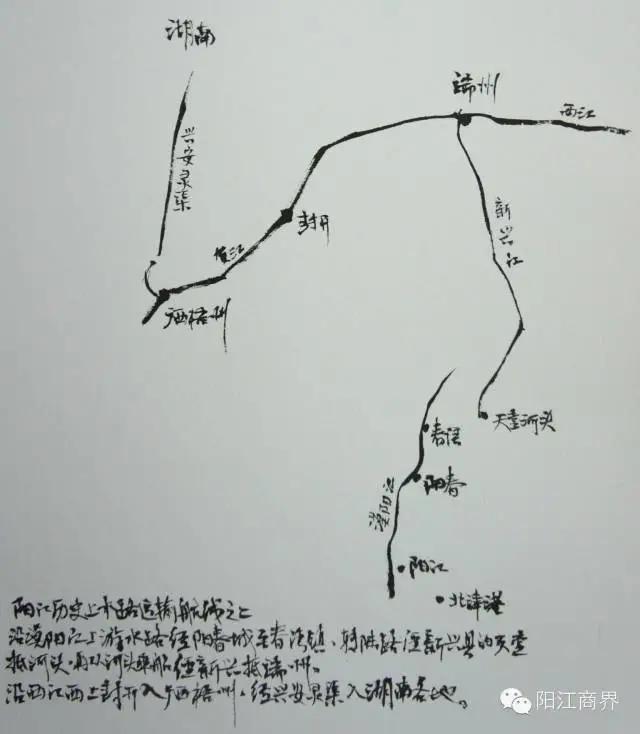 湖南
端州
西江
兴安灵渠
新兴江
封开
贺江
广西梧州
天堂河头
春湾
阳春
漠阳江
阳江
北津港
阳江历史上水路运输航线之二
沿漠阳江上游水路经阳春城至春湾镇、转陆路经新兴县的天堂
抵河头,再从河头乘船经新兴抵端州。
沿西江西上封开入广西梧州,经兴安灵渠入湖南各地。
阳江商界